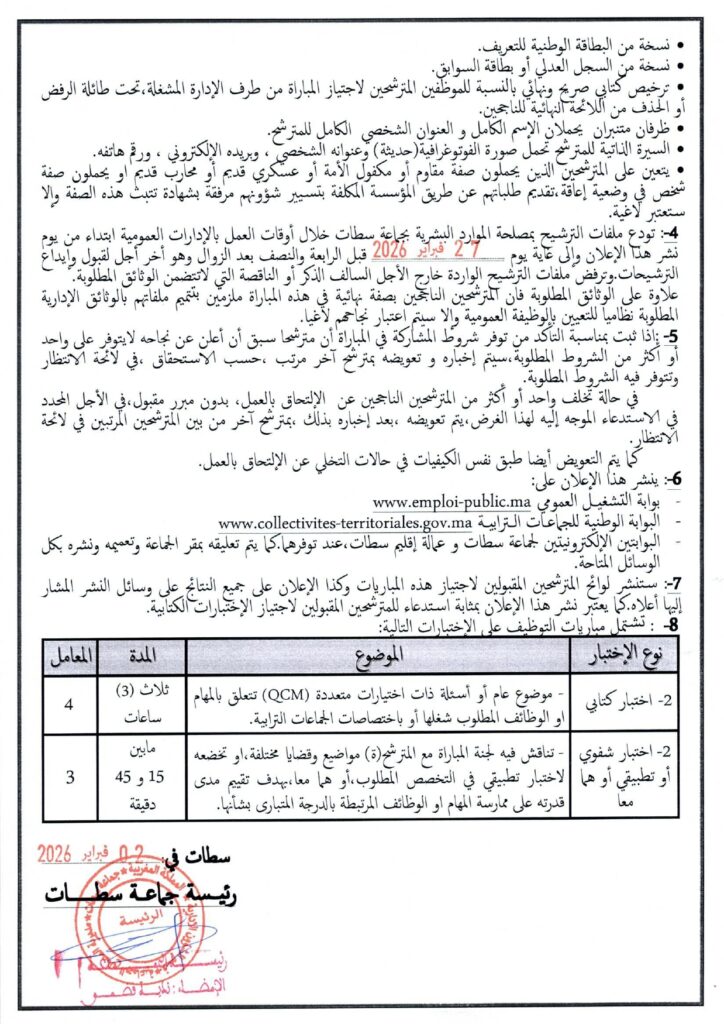 • نسخة من البطاقة الوطنية للتعريف.
• نسخة من السجل العدلي أو بطاقة السوابق.
• ترخيص كتابي صريح ونهائي بالنسبة للموظفين المترشحين لاجتياز المباراة من طرف الإدارة المشغلة،تحت طائلة الرفض
أو الحذف من اللائحة النهائية للناجحين.
• ظرفان متنبران يحملان الإسم الكامل و العنوان الشخصي الكامل للمترشح.
• السيرة الذاتية للمترشح تحمل صورة الفوتوغرافية(حديثة) وعنوانه الشخصي ، وبريده الإلكتروني ، ورقم هاتفه.
• يتعين على المترشحين الذين يحملون صفة مقاوم أو مكفول الأمة أو عسكري قديم أو محارب قديم او يحملون صفة
شخص في وضعية إعاقة،تقديم طلباتهم عن طريق المؤسسة المكلفة بتسيير شؤونهم مرفقة بشهادة تثبث هذه الصفة وإلا
ستعتبر لاغية.
4-: تودع ملفات الترشيح بمصلحة الموارد البشرية بجماعة سطات خلال أوقات العمل بالإدارات العمومية ابتداء من يوم
نشر هذا الإعلان وإلى غاية يوم 27 فبراير 2026 قبل الرابعة والنصف بعد الزوال وهو أخر أجل لقبول وإيداع
الترشيحات.وترفض ملفات الترشيح الواردة خارج الأجل السالف الذكر أو الناقصة التي لاتتضمن الوثائق المطلوبة.
علاوة على الوثائق المطلوبة فان المترشحين الناجحين بصفة نهائية في هذه المباراة ملزمين بتتميم ملفاتهم بالوثائق الإدارية
المطلوبة نظاميا للتعيين بالوظيفة العمومية وإلا سيتم اعتبار نجاحهم لاغيا.
5-: إذا ثبت بمناسبة التأكد من توفر شروط المشاركة في المباراة أن مترشحا سبق أن أعلن عن نجاحه لايتوفر على واحد
أو أكثر من الشروط المطلوبة،سيتم إخباره و تعويضه بمترشح آخر مرتب ،حسب الاستحقاق ،في لائحة الانتظار
وتتوفر فيه الشروط المطلوبة.
في حالة تخلف واحد أو أكثر من المترشحين الناجحين عن الإلتحاق بالعمل، بدون مبرر مقبول،في الأجل المحدد
في الاستدعاء الموجه إليه لهذا الغرض،يتم تعويضه ،بعد إخباره بذلك ،بمترشح آخر من بين المترشحين المرتبين في لائحة
الانتظار.
كما يتم التعويض أيضا طبق نفس الكيفيات في حالات التخلي عن الإلتحاق بالعمل.
6-: ينشر هذا الإعلان على:
- بوابة التشغيل العمومي www.emploi-public.ma
- البوابة الوطنية للجماعات الترابية www.collectivites-territoriales.gov.ma
- البوابتين الإلكترونيتين لجماعة سطات و عمالة إقليم سطات،عند توفرهما.كما يتم تعليقه بمقر الجماعة وتعميمه ونشره بكل
الوسائل المتاحة.
7-: ستنشر لوائح المترشحين المقبولين لاجتياز هذه المباريات وكذا الإعلان على جميع النتائج على وسائل النشر المشار
إليها أعلاه.كما يعتبر نشر هذا الإعلان بمثابة استدعاء للمترشحين المقبولين لاجتياز الإختبارات الكتابية.
8- : تشتمل مباريات التوظيف على الإختبارات التالية:
نوع الإختبار | الموضوع | المدة | المعامل
2- اختبار كتابي | - موضوع عام أو أسئلة ذات اختيارات متعددة (QCM) تتعلق بالمهام | ثلاث (3)
او الوظائف المطلوب شغلها أو باختصاصات الجماعات الترابية. | ساعات | 4
2- اختبار شفوي | - تناقش فيه لجنة المباراة مع المترشح(ة) مواضيع وقضايا مختلفة،او تخضعه | مابين
أو تطبيقي أو هما | لاختبار تطبيقي في التخصص المطلوب،أو هما معا،بهدف تقييم مدى | 15 و 45 | 3
معا | قدرته على ممارسة المهام او الوظائف المرتبطة بالدرجة المتبارى بشأنها. | دقيقة
سطات في: 02 فبراير 2026
رئيسة جماعة سطات
المملكة المغربية
الرئيسة
رئيسة
الإمضاء : نادية فضمي